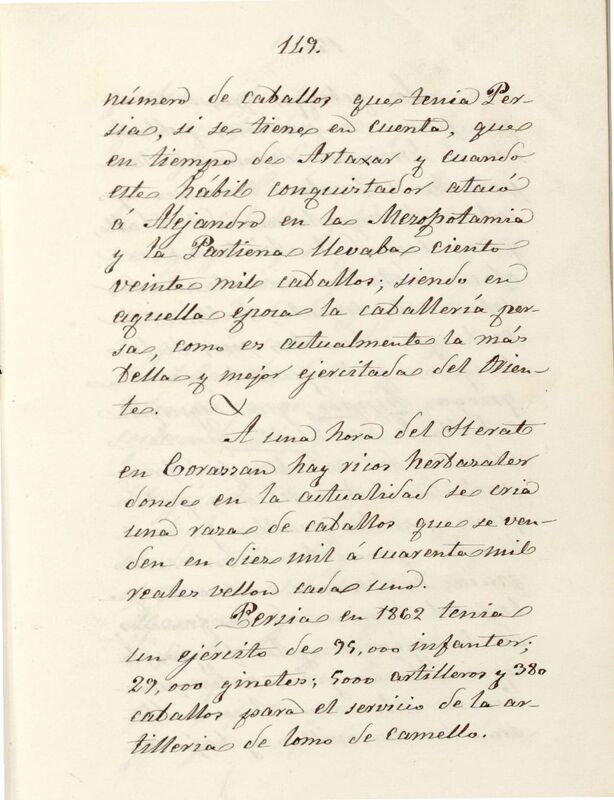 149.
número de caballos que tenia Per-
sia, si se tiene en cuenta, que
en tiempo de Artaxar y cuando
este hábil conquistador atacó
á Alejandro en la Mezopotamia
y la Partiena llevaba ciento
veinte mil caballos; siendo en
aquella época la caballería per-
sa, como es actualmente la más
bella y mejor ejercitada del Orien-
te.
A una hora del Herat
en Corazzan hay ricos herbazales
donde en la actualidad se cria
una raza de caballos que se ven-
den en diez mil á cuarenta mil
reales vellon cada uno.
Persia en 1862 tenia
un ejército de 95,000 infantes;
29,000 ginetes; 5000 artilleros y 380
caballos para el servicio de la ar-
tilleria de lomo de camello.